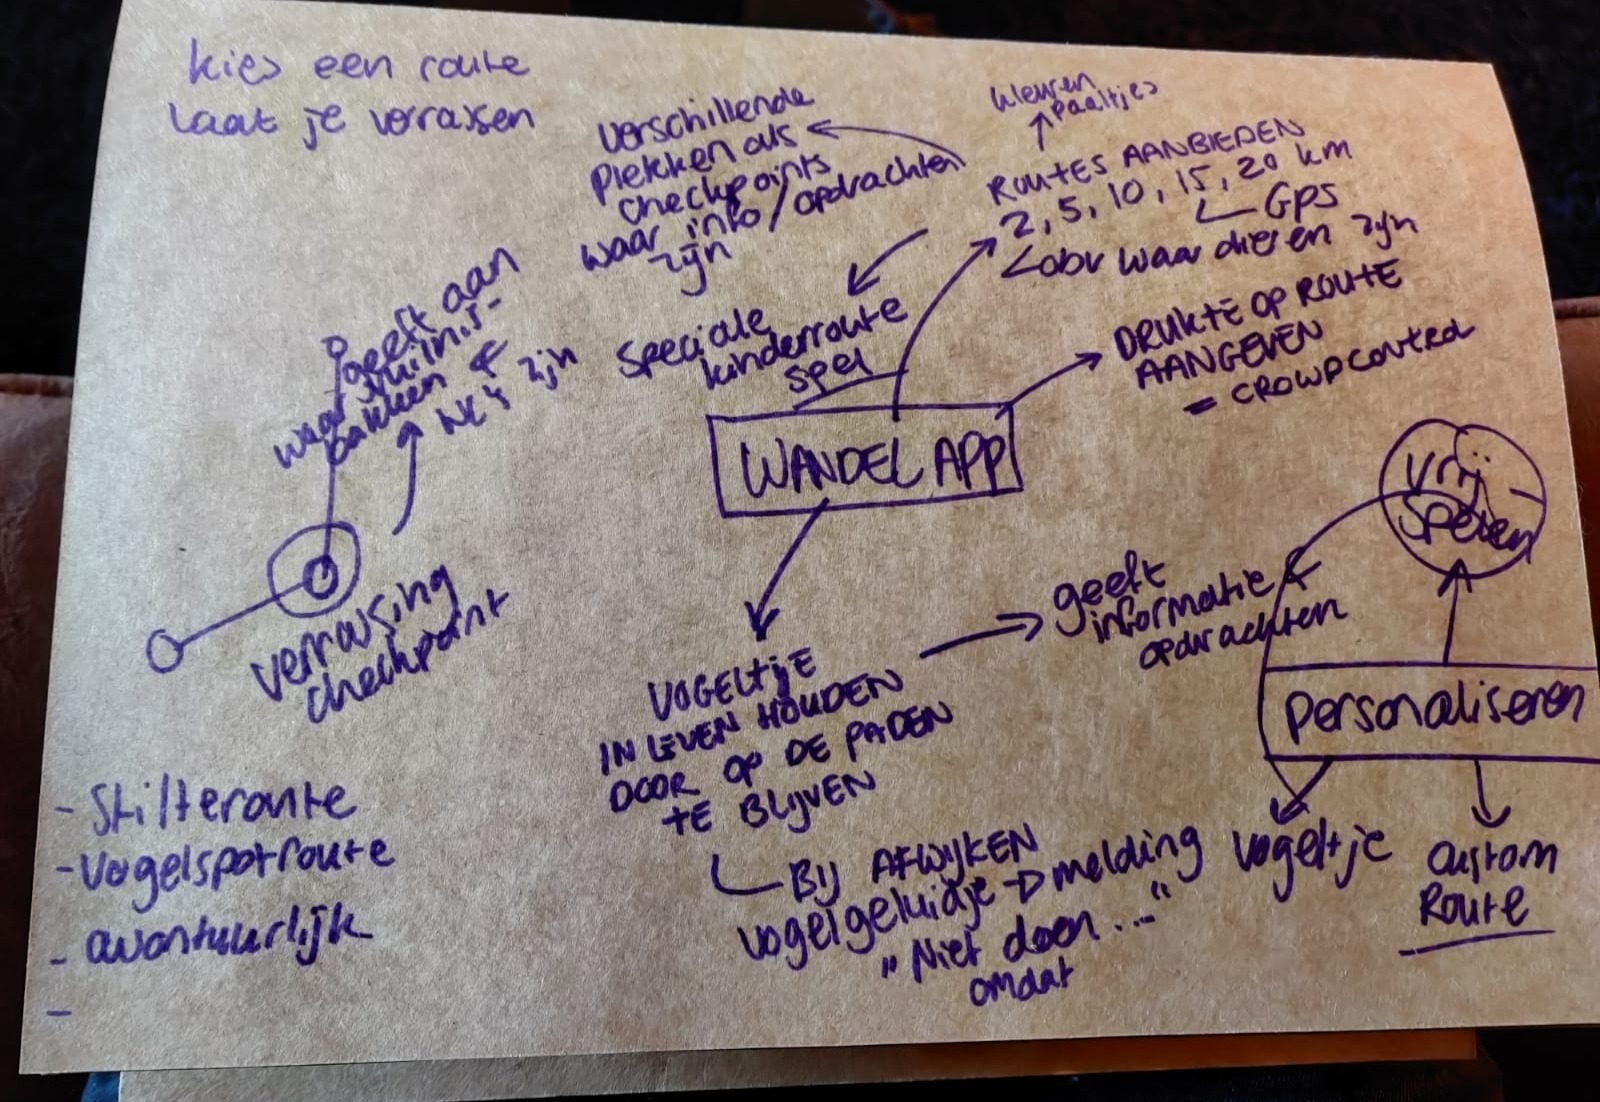 kies een route
Laat je verrassen
Verschillende
plekken als
checkpoints
waar info/opdrachten
zijn
kleuren
paaltjes
ROUTES AANBIEDEN
2, 5, 10, 15, 20 km
GPS
obv waar dieren zijn
DRUKTE OP ROUTE
AANGEVEN
= CROWDCONTROL
Speciale
kinderroute
spel
geeft aan
waar vuilnis-
bakken &
wc's zijn
WANDEL APP
Vrij
Spelen
verrassing
checkpoint
geeft
informatie
opdrachten
personaliseren
VOGELTJE
IN LEVEN HOUDEN
DOOR OP DE PADEN
TE BLIJVEN
BIJ AFWIJKEN
vogelgeluidje → melding
"Niet doen..."
omdat
vogeltje
Custom
Route
- Stilteroute
- Vogelspotroute
- avontuurlijk
-